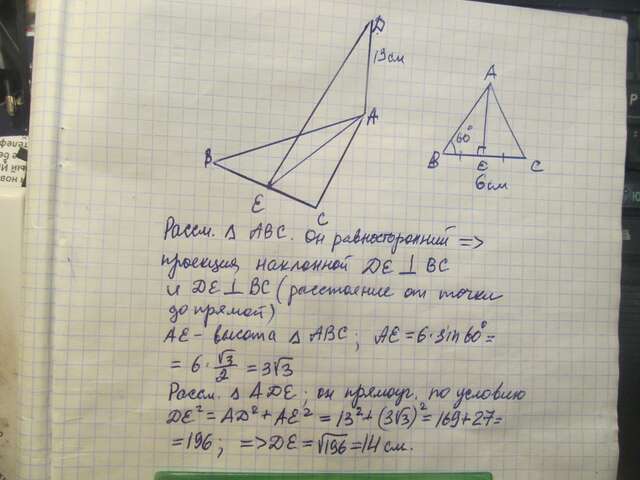 D
13см
A
B
E
C
A
60°
B
E
C
6см
Рассм. △ ABC. Он равносторонний =>
проекция наклонной DE ⊥ BC
и DE ⊥ BC (расстояние от точки
до прямой)
AE - высота △ ABC; AE = 6·sin60° =
= 6·√3/2 = 3√3
Рассм. △ ADE; он прямоуг. по условию
DE² = AD² + AE² = 13² + (3√3)² = 169 + 27 =
= 196; => DE = √196 = 14 см.